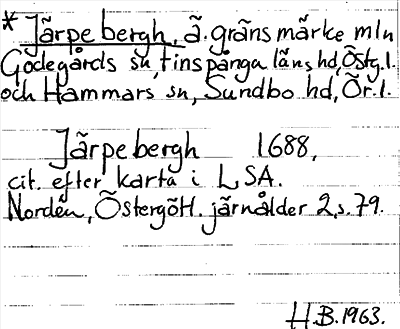 * Järpebergh, ä. gränsmärke mln
Godegårds sn, Finspånga läns hd, Östg.l.
och Hammars sn, Sundbo hd, Ör.l.
Järpebergh 1688,
cit. efter karta i LSA.
Nordén, Östergötl. järnålder 2, s. 79.
H.B. 1963.